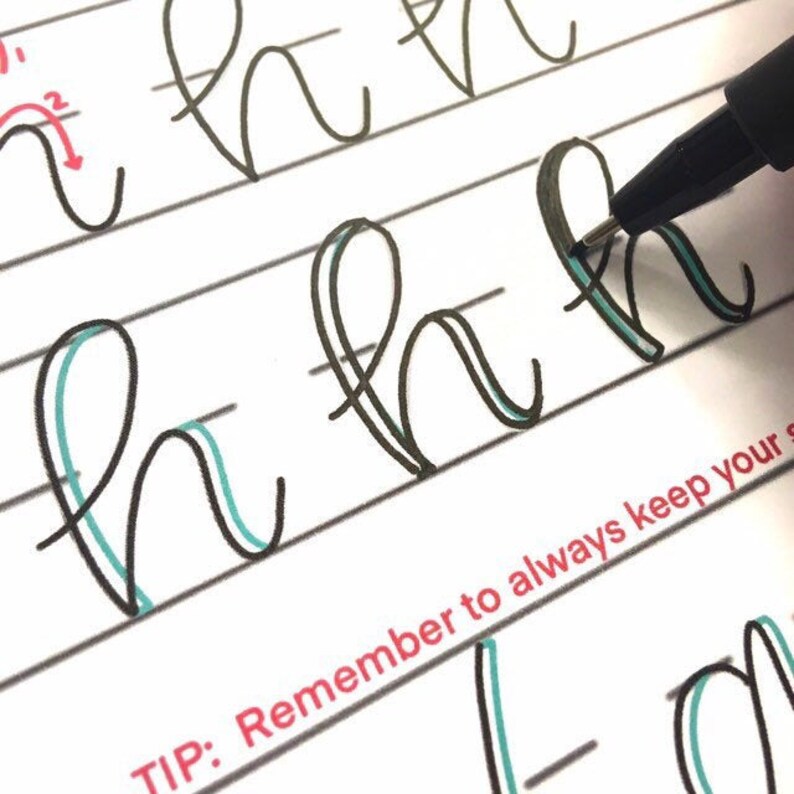 1
2
h h h
h h h
TIP: Remember to always keep your